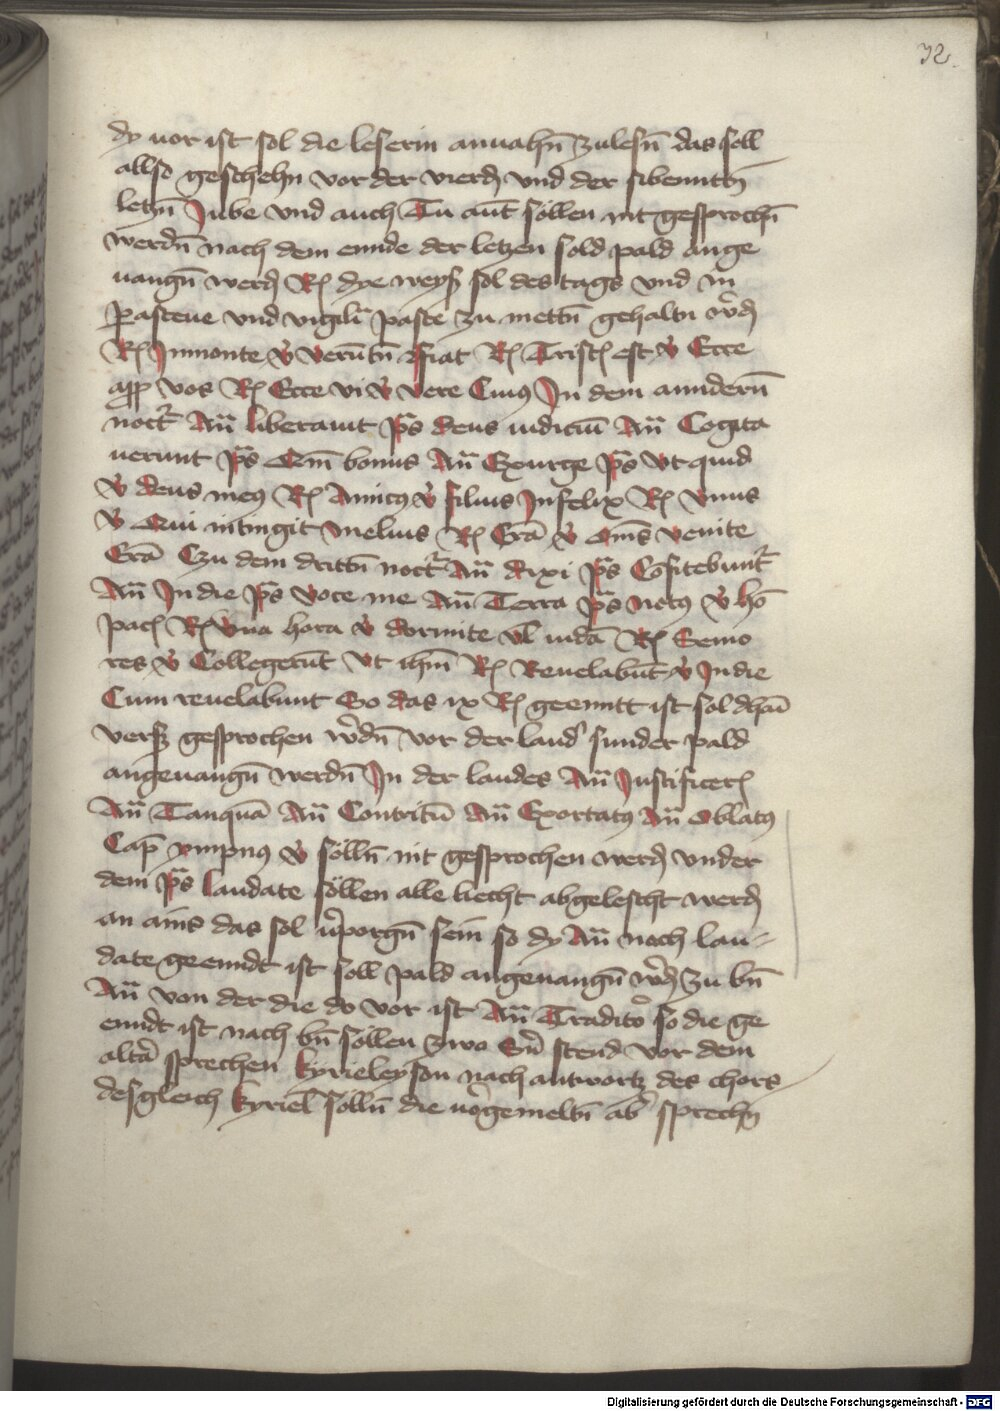 32.
dy vor ist sol die leserin anuahn̄ zulesn̄ das soll
allso geschehn vor der vierdn̄ vnd der sibenntn̄
letzn̄ Jube vnd auch Tu aut̄ söllen nit gesprochn̄
werdn̄ nach dem ennde der letzen sold pald ange
uangn̄ werdn̄ R̄ dye weyß sol des tags vnd in
parasceue vnd vigili pasce zu mettn̄ gehaltn w̄dn̄
R̄ Jnmonte v̄ verūtn̄ fiat R̄ Tristꝭ est v̄ Ecce
app̄ vos R̄ Ecce vi v̄ vere Cuiꝰ Jn dem anndern̄
noct̄ An̄ liberauit p̄s deus iudiciū An̄ Cogita
uerunt p̄s Qm̄ bonus An̄ Exurge p̄s vt quid
v̄ deus meꝰ R̄ Amicꝰ v̄ filius Jnfelix R̄ vnus
v̄ Qui intingit melius R̄ Erā v̄ Om̄s venite
Erā Czu dem drittn̄ noct̄ An̄ dixi p̄s Cōfitebunt̄
An̄ Jn die p̄s voce me An̄ Terra p̄s notꝰ v̄ hō
pacꝭ R̄ vna hora v̄ dormite vl̄ iudā R̄ Senio
res v̄ Collegerūt vt ihm̄ R̄ Reuelabūt v̄ Jn die
Cum reuelabunt So das ix R̄ geenntt ist sol dhaī
verß gesprochen w̄dn̄ vor der laud̄ sunder pald
angeuangn̄ werdn̄ Jn der laudes An̄ Justificerꝭ
An̄ Tanquā An̄ Contritū An̄ Exortatꝰ An̄ Oblatꝰ
Cap̄ ympnꝰ v̄ sölln̄ nit gesprochen werdn̄ vnder
dem p̄s laudate söllen alle liecht abgelescht werdn̄
an ains das sol v̄porgn̄ sein so dy An̄ noch lau=
date geenndt ist soll pald angeuangn̄ w̄dn̄ zu bn̄
An̄ von der die do vor ist An̄ Traditō so die ge
enndt ist nach bn̄ söllen zwo Sn̄ stend vor dem
altā sprechen kyrieleyson nach antwortz des chors
desgleich kyriel̄ sölln̄ die vōgemeltn̄ ab̄ sprechn̄
Digitalisierung gefördert durch die Deutsche Forschungsgemeinschaft - DFG